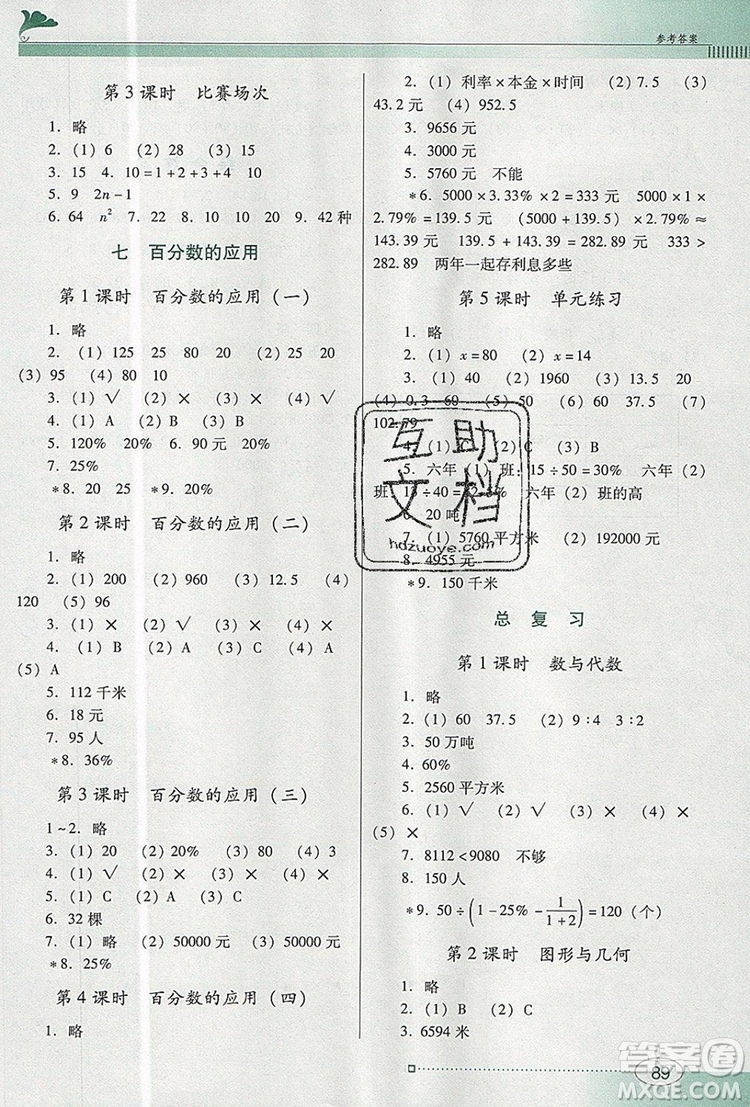 参考答案
第 3 课时　比赛场次
1. 略
2. (1) 6　(2) 28　(3) 15
3. 15　4. 10 = 1 + 2 + 3 + 4　10
5. 9　2n − 1
6. 64　n²　7. 22　8. 10　10　20　9. 42 种
七　百分数的应用
第 1 课时　百分数的应用(一)
1. 略
2. (1) 125　25　80　20　(2) 25　20
(3) 95　(4) 120　8　10
3. (1) √　(2) ×　(3) ×　(4) ×
4. (1) A　(2) B　(3) B
5. 120%　20%　6. 90 元　20%
7. 25%
*8. 20　25　*9. 20%
第 2 课时　百分数的应用(二)
1. 略
2. (1) 200　(2) 960　(3) 12.5　(4)
120　(5) 96
3. (1) ×　(2) √　(3) ×　(4) ×
4. (1) B　(2) A　(3) B　(4) A
(5) A
5. 112 千米
6. 18 元
7. 95 人
*8. 36%
第 3 课时　百分数的应用(三)
1 ~ 2. 略
3. (1) 20　(2) 20%　(3) 80　(4) 3
4. (1) √　(2) ×　(3) ×　(4) ×
5. (1) A　(2) B　(3) C　(4) A
6. 32 棵
7. (1) 略　(2) 50000 元　(3) 50000 元
*8. 25%
第 4 课时　百分数的应用(四)
1. 略
2. (1) 利率 × 本金 × 时间　(2) 7.5　(3)
43.2 元　(4) 952.5
3. 9656 元
4. 3000 元
5. 5760 元　不能
*6. 5000 × 3.33% × 2 = 333 元　5000 × 1 ×
2.79% = 139.5 元　(5000 + 139.5) × 2.79% ≈
143.39 元　139.5 + 143.39 = 282.89 元　333 >
282.89　两年一起存利息多些
第 5 课时　单元练习
1. 略
2. (1) x = 80　(2) x = 14
3. (1) 40　(2) 1960　(3) 13.5　20
(4) 0.3　60　(5) 50　(6) 60　37.5　(7)
102.79
4. (1) C　(2) C　(3) B
5. 六年(1)班: 15 ÷ 50 = 30%　六年(2)
班: 15 ÷ 40 = 　六年(2)班的高
6. 20 吨
7. (1) 5760 平方米　(2) 192000 元
8. 4955 元
*9. 150 千米
互助
文档
hdzuoye.com
总　复　习
第 1 课时　数与代数
1. 略
2. (1) 60　37.5　(2) 9∶4　3∶2
3. 50 万吨
4. 60%
5. 2560 平方米
6. (1) √　(2) √　(3) ×　(4) ×
(5) ×
7. 8112 < 9080　不够
8. 150 人
*9. 50 ÷ (1 − 25% − 1/(1+2)) = 120 (个)
第 2 课时　图形与几何
1. 略
2. (1) B　(2) C
3. 6594 米
89
答案圈
MXQE.COM